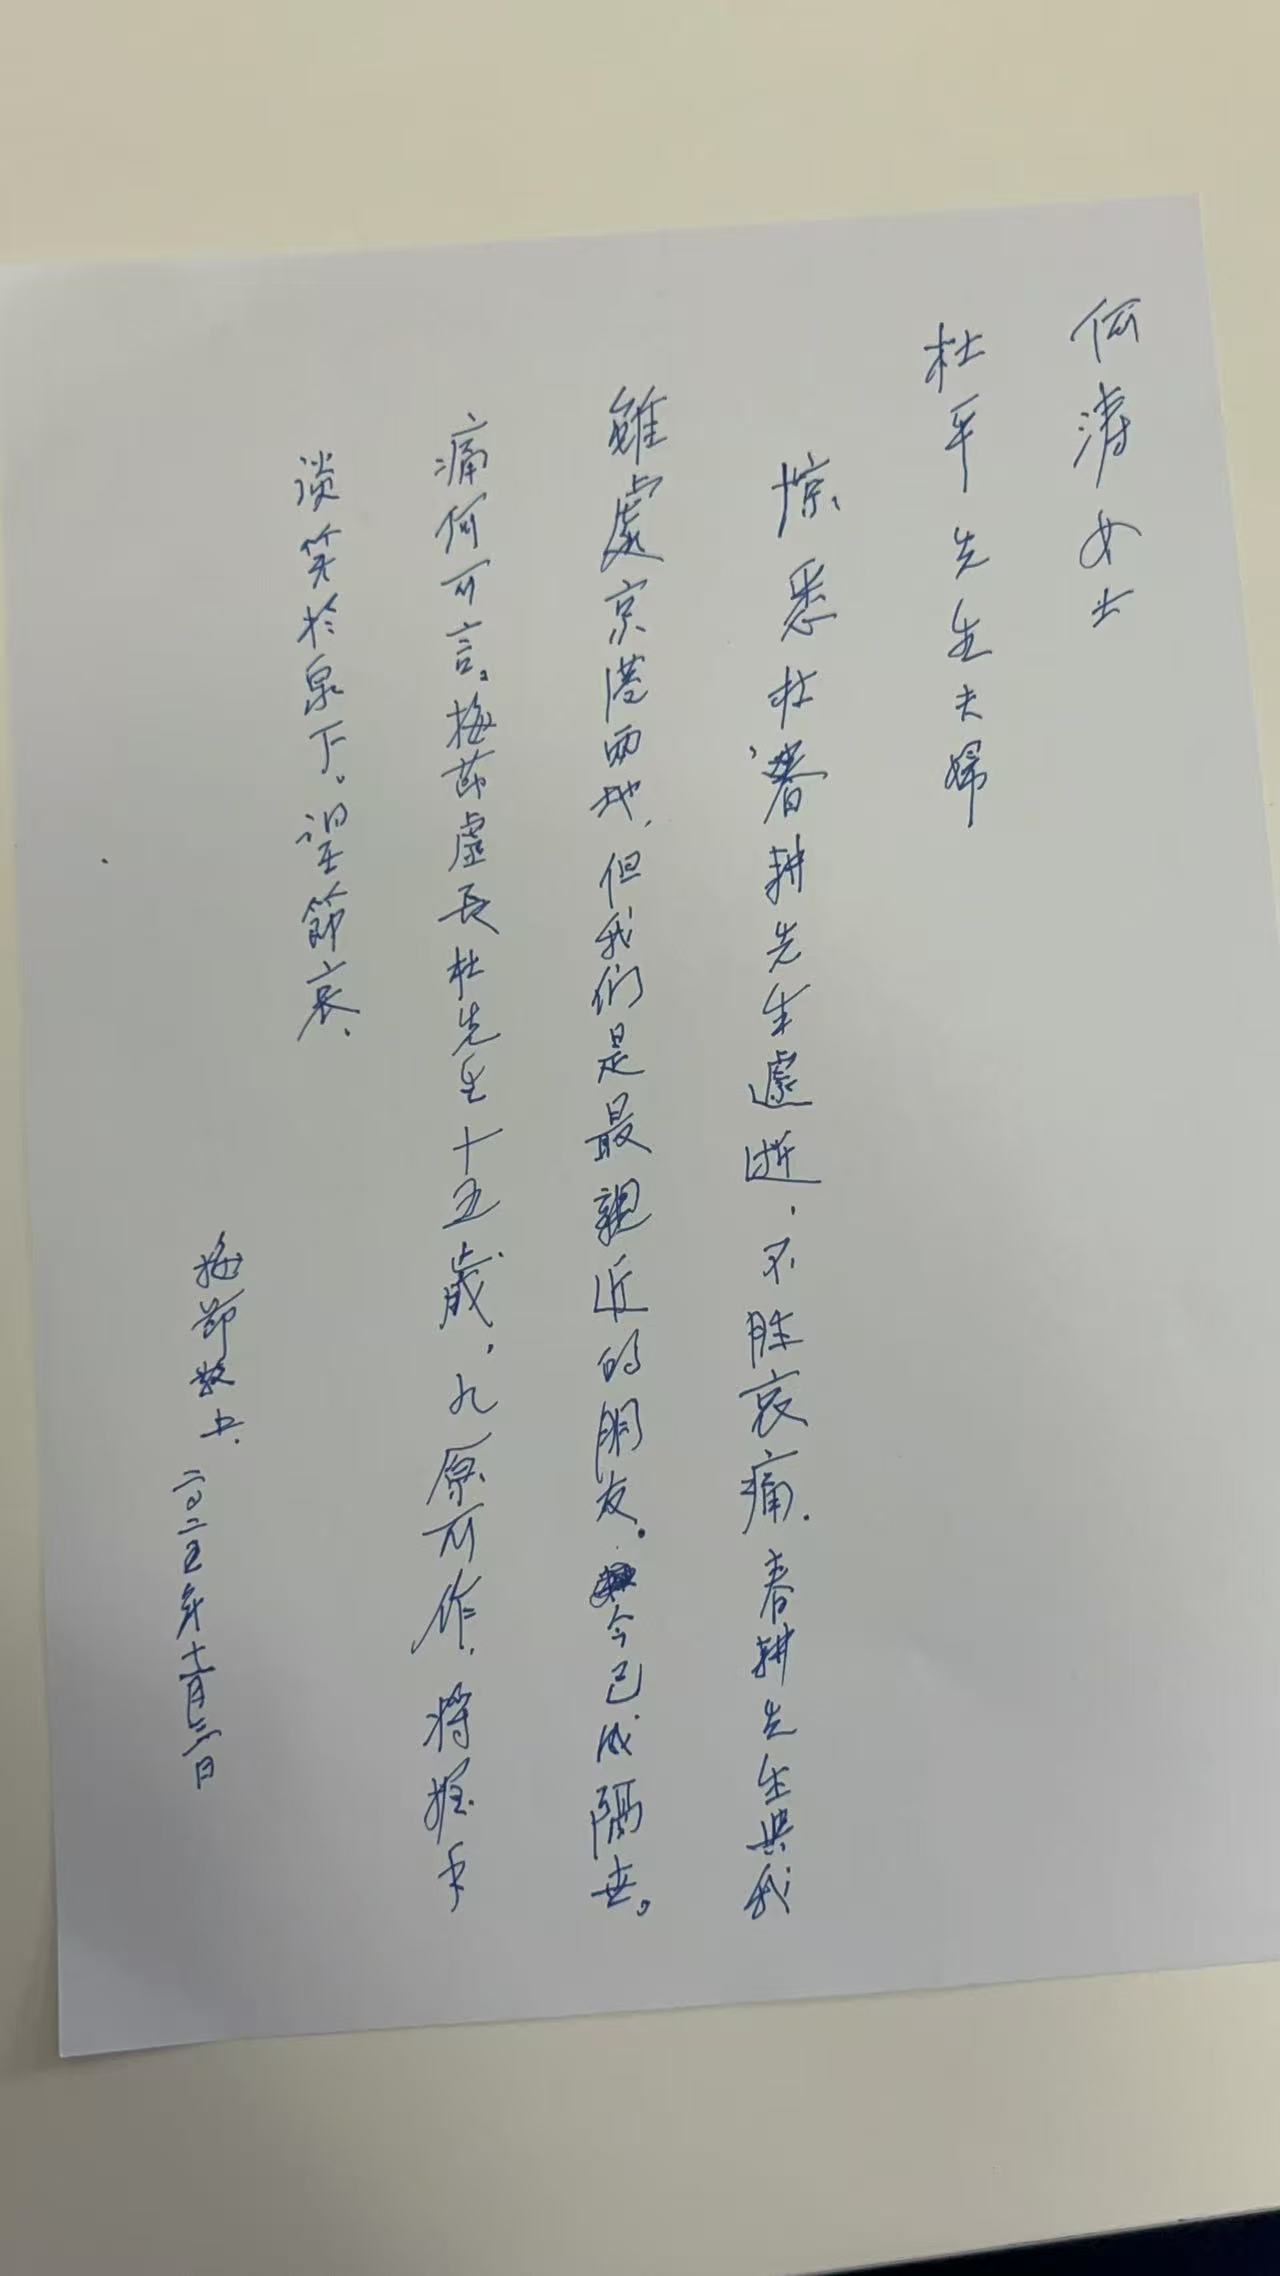 何涛女士
杜平先生夫婦
惊悉杜春耕先生遽逝，不胜哀痛.春耕先生與我
雖處京港兩地，但我们是最親近的朋友.今已成隔世。
痛何可言。梅节虚長杜先生十五歲，九原可作，將握手
談笑於泉下。望節哀.
梅節敬上.
二〇二五年十一月三日